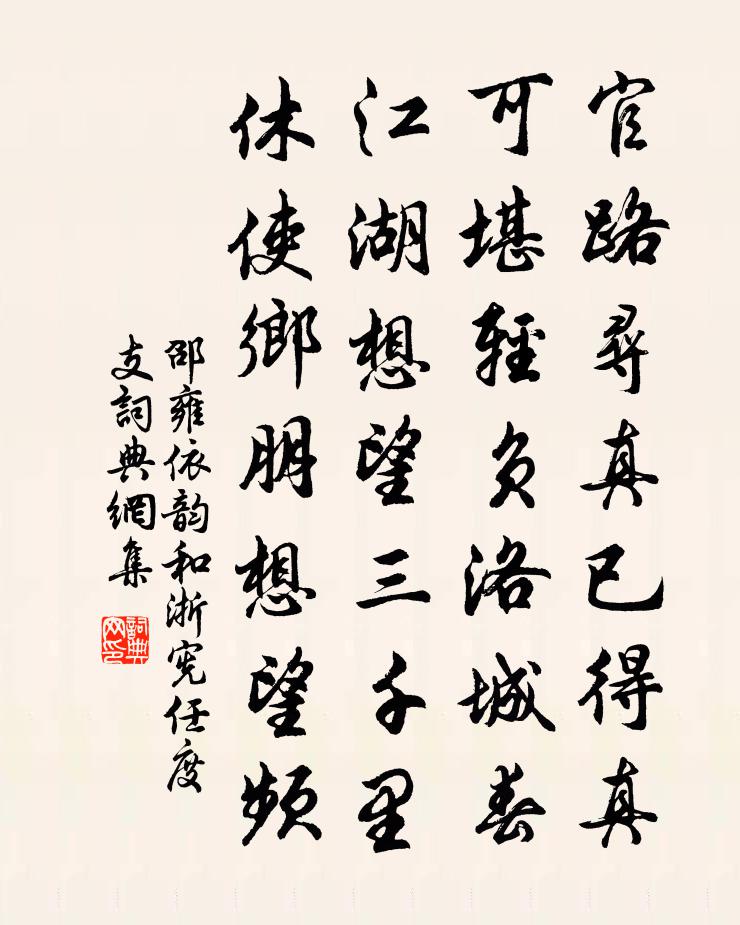 官路尋真已得真
可堪輕负洛城春
江湖想望三千里
休使鄉朋想望頻
邵雍依韵和浙憲任度
支詞典網集
詞典
网印